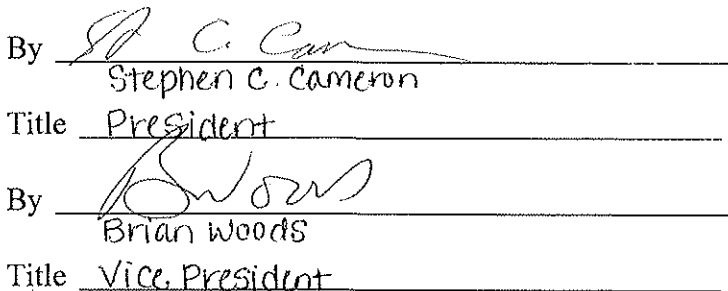 By St C. Cam
Stephen C. Cameron
Title President
By B Woods
Brian Woods
Title Vice President